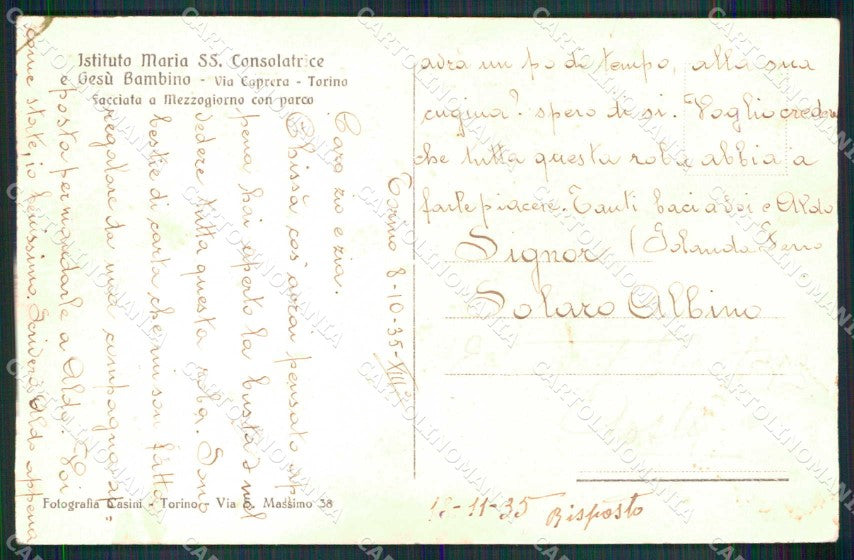 Istituto Maria SS. Consolatrice
e Gesù Bambino - Via Caprera - Torino
Facciata a Mezzogiorno con parco
Torino 8-10-35-XIII
Caro zio e zia.
Chissà cos'avrai pensato ap
pena hai aperto la busta e nel
vedere tutta questa roba. Sono
bestie di carta che mi son fatta
regalare da una compagna ap-
posta per mandarle a Aldo. Voi
come state, io benissimo. Scriverà Aldo appena
avrà un po di tempo, alla sua
cugina? spero di si. Voglio credere
che tutta questa roba abbia a
farle piacere. Tanti baci a voi e Aldo
Iolanda Ferro
Signor
Solaro Albino
Fotografia Casini - Torino - Via S. Massimo 38
18-11-35 Risposto
CARTOLINOMANIA